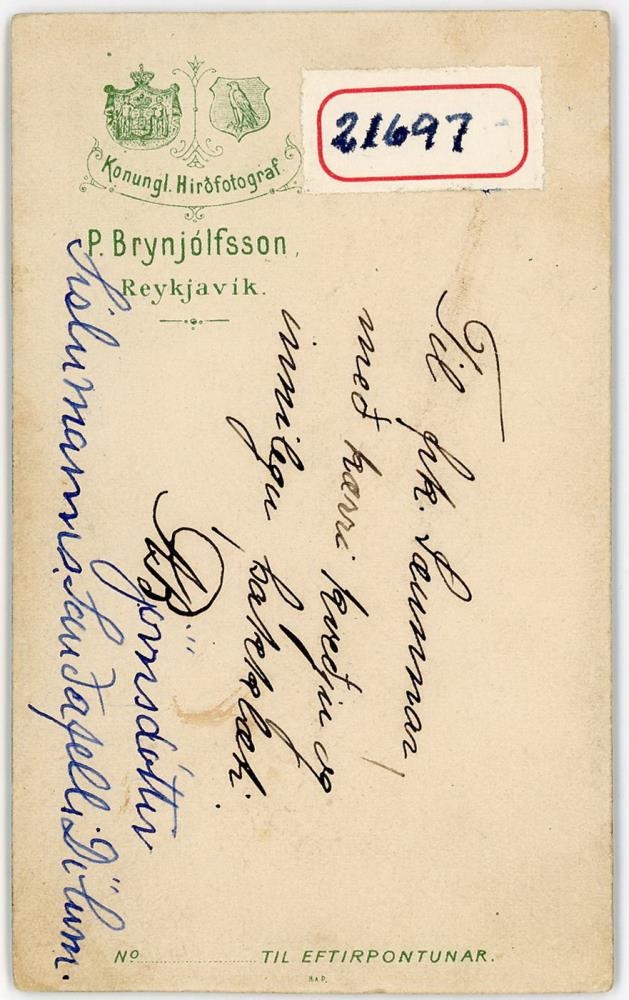 21697
Konungl. Hirðfotograf.
P. Brynjólfsson,
Reykjavík.
Til frk. Sæunnar,
með kærri kveðju og
innilegu þakklæti.
Björnsdóttir
Sislumanns. Sauðafelli Dölum.
No TIL EFTIRPONTUNAR.